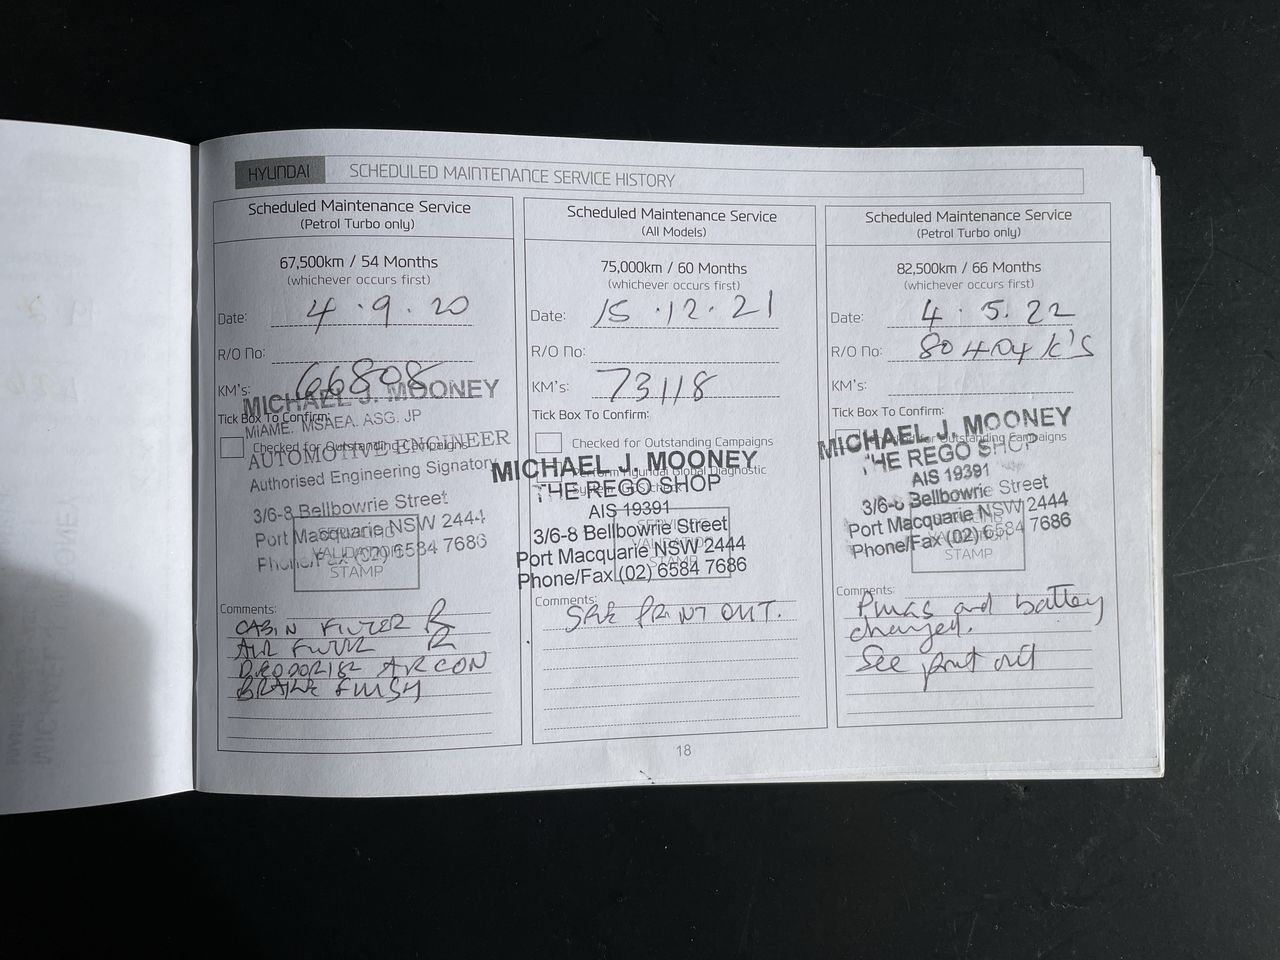 HYUNDAI SCHEDULED MAINTENANCE SERVICE HISTORY
Scheduled Maintenance Service
(Petrol Turbo only)
67,500km / 54 Months
(whichever occurs first)
Date: 4.9.20
R/O No:
KM's: 66808
MICHAEL J. MOONEY
Tick Box To Confirm:
MIAME. MSAEA. ASG. JP
Checked for Outstanding Campaigns
AUTOMOTIVE ENGINEER
Authorised Engineering Signatory
3/6-8 Bellbowrie Street
Port Macquarie NSW 2444
Phone/Fax (02) 6584 7686
VALIDATION
STAMP
Comments:
CABIN FILTER R
AIR FILTER R
DEODORISE AIRCON
BRAKE FLUSH
Scheduled Maintenance Service
(All Models)
75,000km / 60 Months
(whichever occurs first)
Date: 15.12.21
R/O No:
KM's: 73118
Tick Box To Confirm:
Checked for Outstanding Campaigns
MICHAEL J. MOONEY
Hyundai Global Diagnostic
THE REGO SHOP
AIS 19391
3/6-8 Bellbowrie Street
Port Macquarie NSW 2444
Phone/Fax (02) 6584 7686
STAMP
Comments:
SEE PRINT OUT.
Scheduled Maintenance Service
(Petrol Turbo only)
82,500km / 66 Months
(whichever occurs first)
Date: 4.5.22
R/O No: 80404 K'S
KM's:
Tick Box To Confirm:
MICHAEL J. MOONEY
for Outstanding Campaigns
THE REGO SHOP
AIS 19391
3/6-8 Bellbowrie Street
Port Macquarie NSW 2444
Phone/Fax (02) 6584 7686
STAMP
Comments:
and battery
changed.
See print out
18